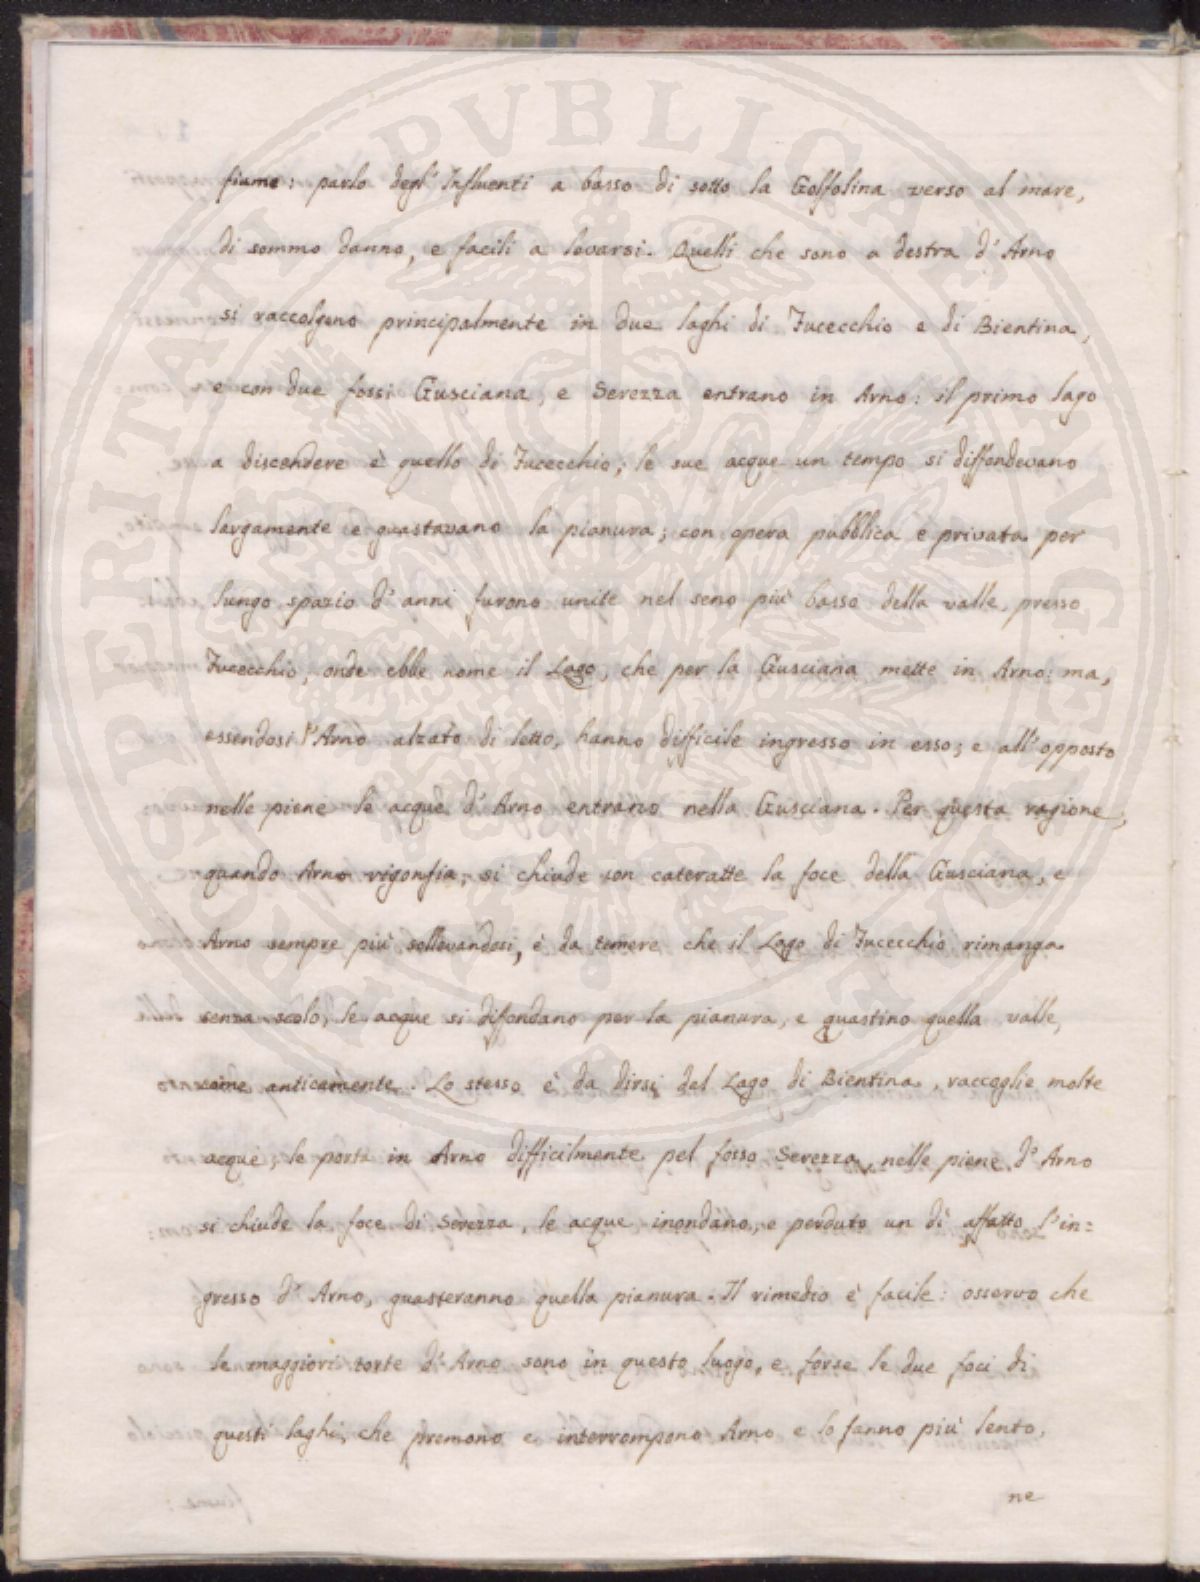 fiume: parlo degl' Influenti a basso di sotto la Golfolina verso al mare,
di sommo danno, e facili a levarsi. Quelli che sono a destra d' Arno
si raccolgono principalmente in due laghi di Fucecchio e di Bientina,
e con due fossi Gusciana, e Serezza entrano in Arno: il primo lago
a discendere è quello di Fucecchio; le sue acque un tempo si diffondevano
largamente e guastavano la pianura; con opera pubblica e privata per
lungo spazio d' anni furono unite nel seno più basso della valle presso
Fucecchio, onde ebbe nome il Lago, che per la Gusciana mette in Arno: ma,
essendosi l' Arno alzato di letto, hanno difficile ingresso in esso; e all' opposto
nelle piene le acque d' Arno entrano nella Gusciana. Per questa ragione,
quando Arno rigonfia, si chiude con cateratte la foce della Gusciana, e
Arno sempre più sollevandosi, è da temere che il Lago di Fucecchio rimanga
senza scolo, le acque si difondano per la pianura, e guastino quella valle,
come anticamente. Lo stesso è da dirsi del Lago di Bientina, raccoglie molte
acque, le porta in Arno difficilmente pel fosso Serezza, nelle piene d' Arno
si chiude la foce di Serezza, le acque inondano, e perduto un dì affatto l' in=
gresso d' Arno, guasteranno quella pianura. Il rimedio è facile: osservo che
le maggiori torte d' Arno sono in questo luogo, e forse le due foci di
questi laghi, che premono e interrompono Arno e lo fanno più lento,
ne
PROSPERITATI PUBLICAE AUGENDAE